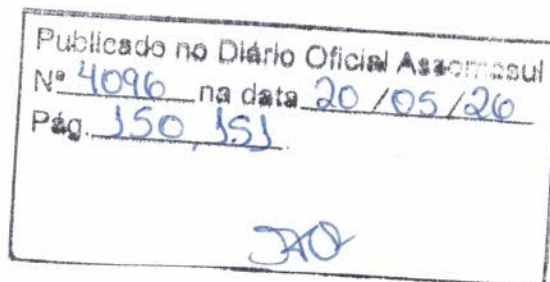 Publicado no Diário Oficial Assomasul
Nº 4096 na data 20/05/26
Pág. 150, 151.